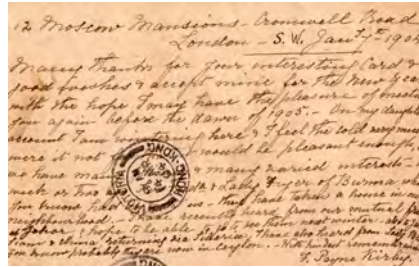 12 Moscow Mansions - Cromwell Road
London - S.W. Jany 7th 1904
Many thanks for your interesting Card &
good wishes & accept mine for the New Year
with the hope I may have the pleasure of meeting
you again before the dawn of 1905. - On my daughter's
account I am wintering here & I feel the cold very much
were it not would be pleasant enough,
we have many & many varied interests -
& Lady Fryer of Burma who
you know have taken a house in our
neighbourhood. I have recently heard from our mutual
of Johor, hope to be able to them next winter
Siam & China returning via Siberia. I have also heard from Lady
you know probably they are now in Ceylon. - With kindest remembrances
F. Payne Kirby
HONG-KONG